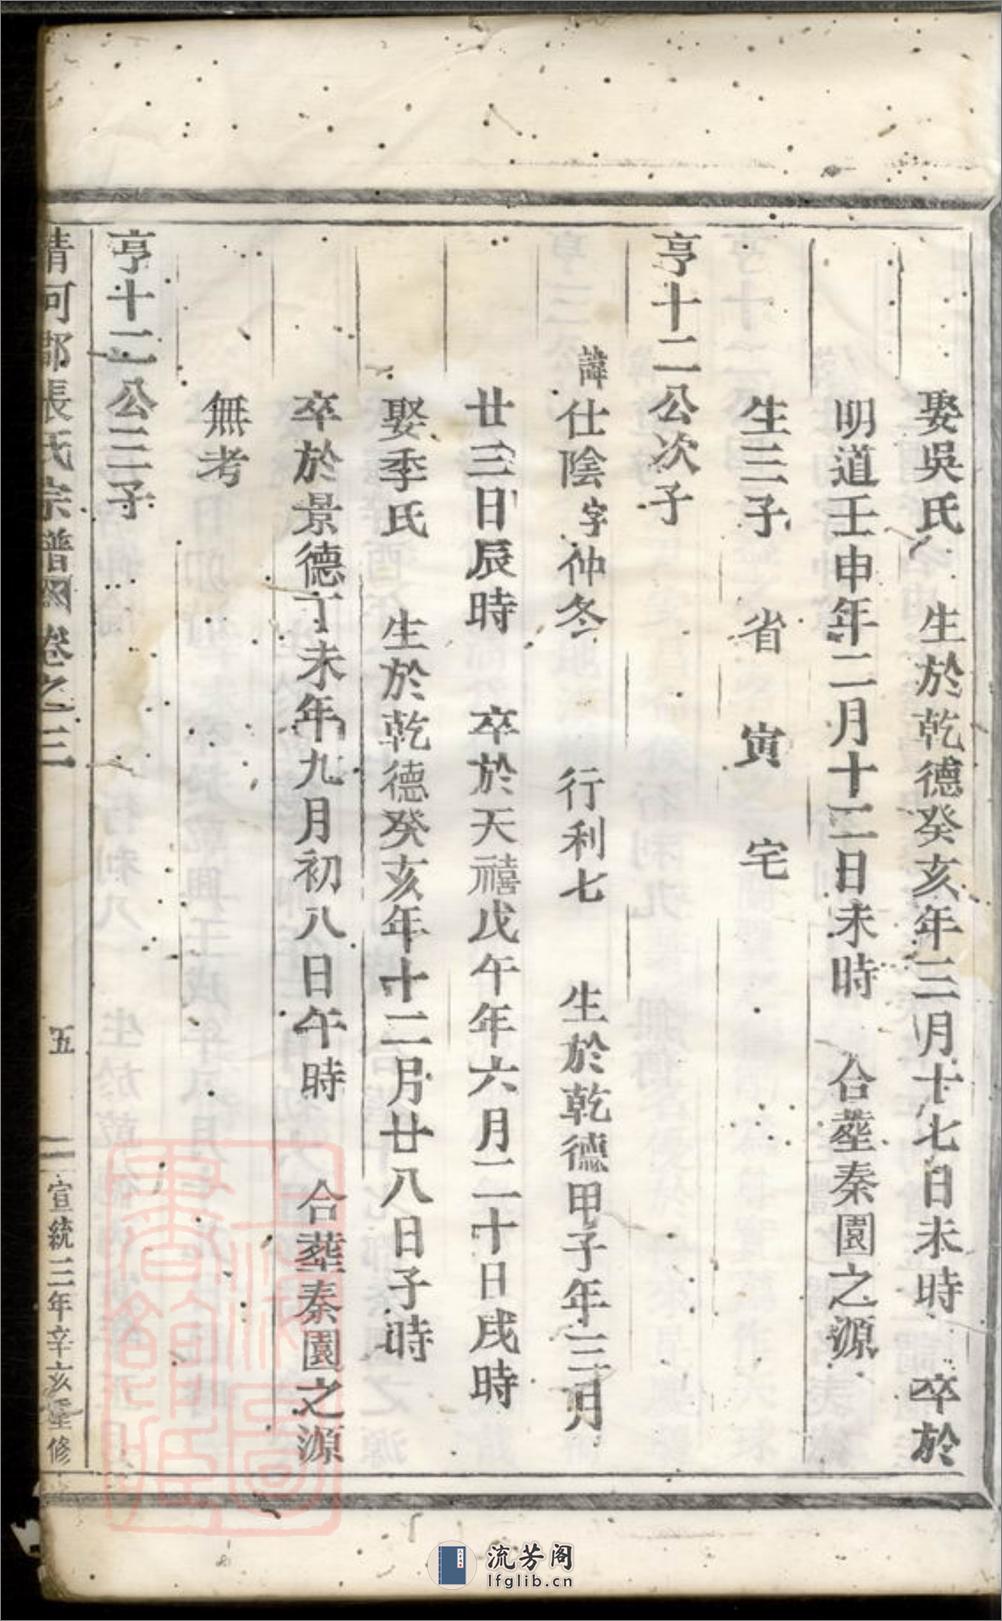 娶吳氏　生於乾德癸亥年三月十七日未時　卒於
明道壬申年二月十二日未時　合塟秦園之源
生三子　省　寅　宅
亨十二公次子
諱仕陰字仲冬　行利七　生於乾德甲子年三月
廿三日辰時　卒於天禧戊午年六月二十日戌時
娶季氏　生於乾德癸亥年十二月廿八日子時
卒於景德丁未年九月初八日午時　合塟秦園之源
無考
亨十二公三子
清河郡張氏宗譜　卷之三　五　宣統三年辛亥重修
上海圖書館藏
流芳阁
lfglib.cn